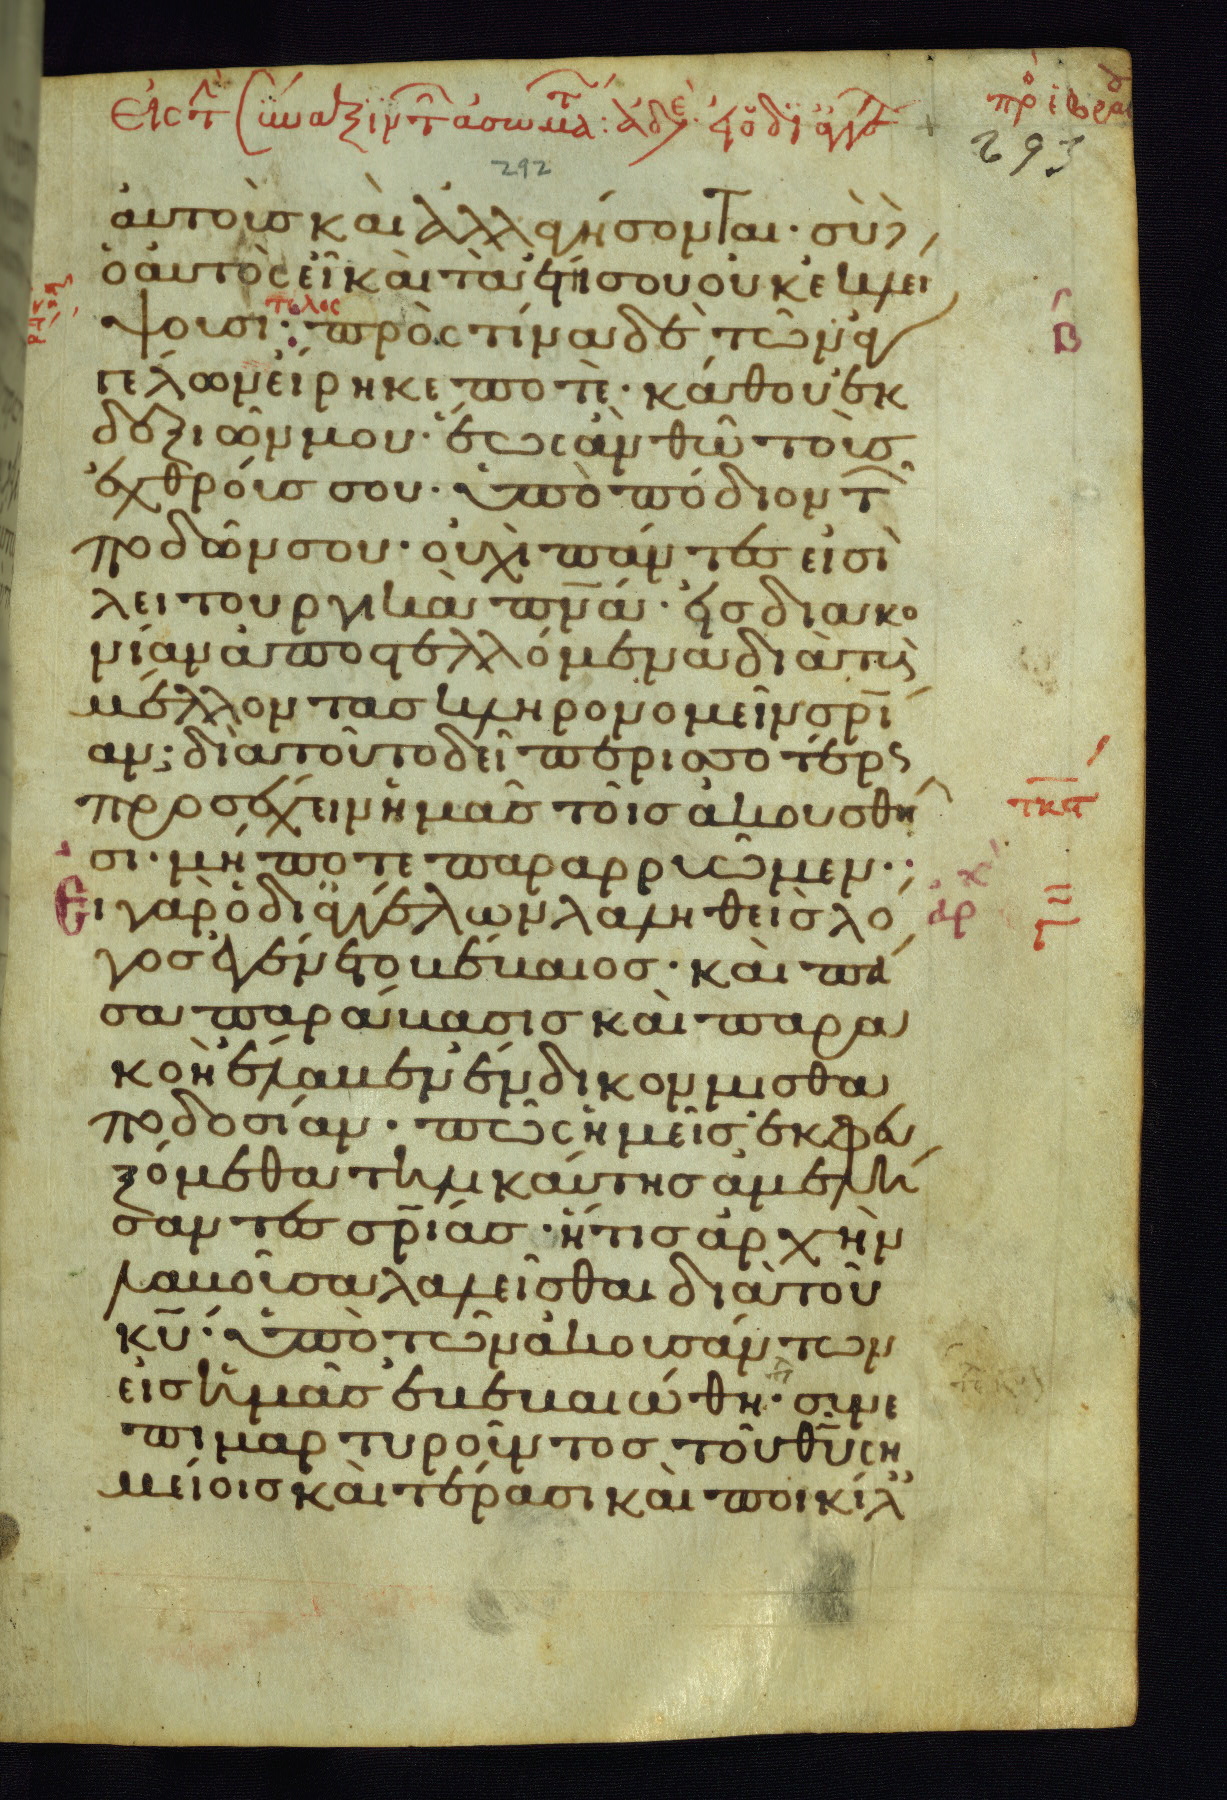 Εἰς τ(ὴν) σύναξιν τῶν ἀσωμάτ(ων): ἀδε· ὁ δι ἀγγέ
πρ ἑβρα
293
292
ἀυτοὺσ καὶ ἀλλαγήσονται· σὺ δὲ
ὁ ἀυτὸς εἶ καὶ τὰ ἔτη σου οὐκ ἐκλεί
ψουσι· τέλος πρὸς τίνα δὲ τῶν ἀγ
γέλων εἴρηκε ποτὲ· κάθου ἐκ
δεξιῶν μου· ἕως ἂν θῶ τοὺσ
ἐχθρούσ σου· ὑποπόδιον τῶν
ποδῶν σου· οὐχὶ πάντεσ εἰσὶ
λειτουργικὰ πν̅ά· εἰσ διακο
νίαν ἀποστελλόμενα διὰ τοὺς
μέλλοντασ κληρονομεῖν σρ̅ί
αν; διὰ τοῦτο δεῖ περισσοτέρως
προσέχειν ἡμᾶσ τοῖσ ἀκουσθεῖ
σι· μήποτε παραρρυῶμεν·
Ει γὰρ ὁ δι ἀγγέλων λαληθεὶσ λό
γοσ ἐγένετο βέβαιοσ· καὶ πᾶ
σα παράβασισ καὶ παρα
κοὴ ἔλαβεν ἔνδικον μισθα
ποδοσίαν· πῶς ἡμεῖσ ἐκφευ
ξόμεθα τηλικαύτησ ἀμελή
σαντεσ σρ̅ίασ· ἥτισ ἀρχὴν
λαβοῦσα λαλεῖσθαι διὰ τοῦ
κυ̅· ὑπὸ τῶν ἀκουσάντων
εἰσ ἡμᾶσ ἐβεβαιώθη· συνε
πιμαρτυροῦντοσ τοῦ θυ̅ ση
μείοισ καὶ τέρασι καὶ ποικίλ
β
τκα
γ
ἀρχ